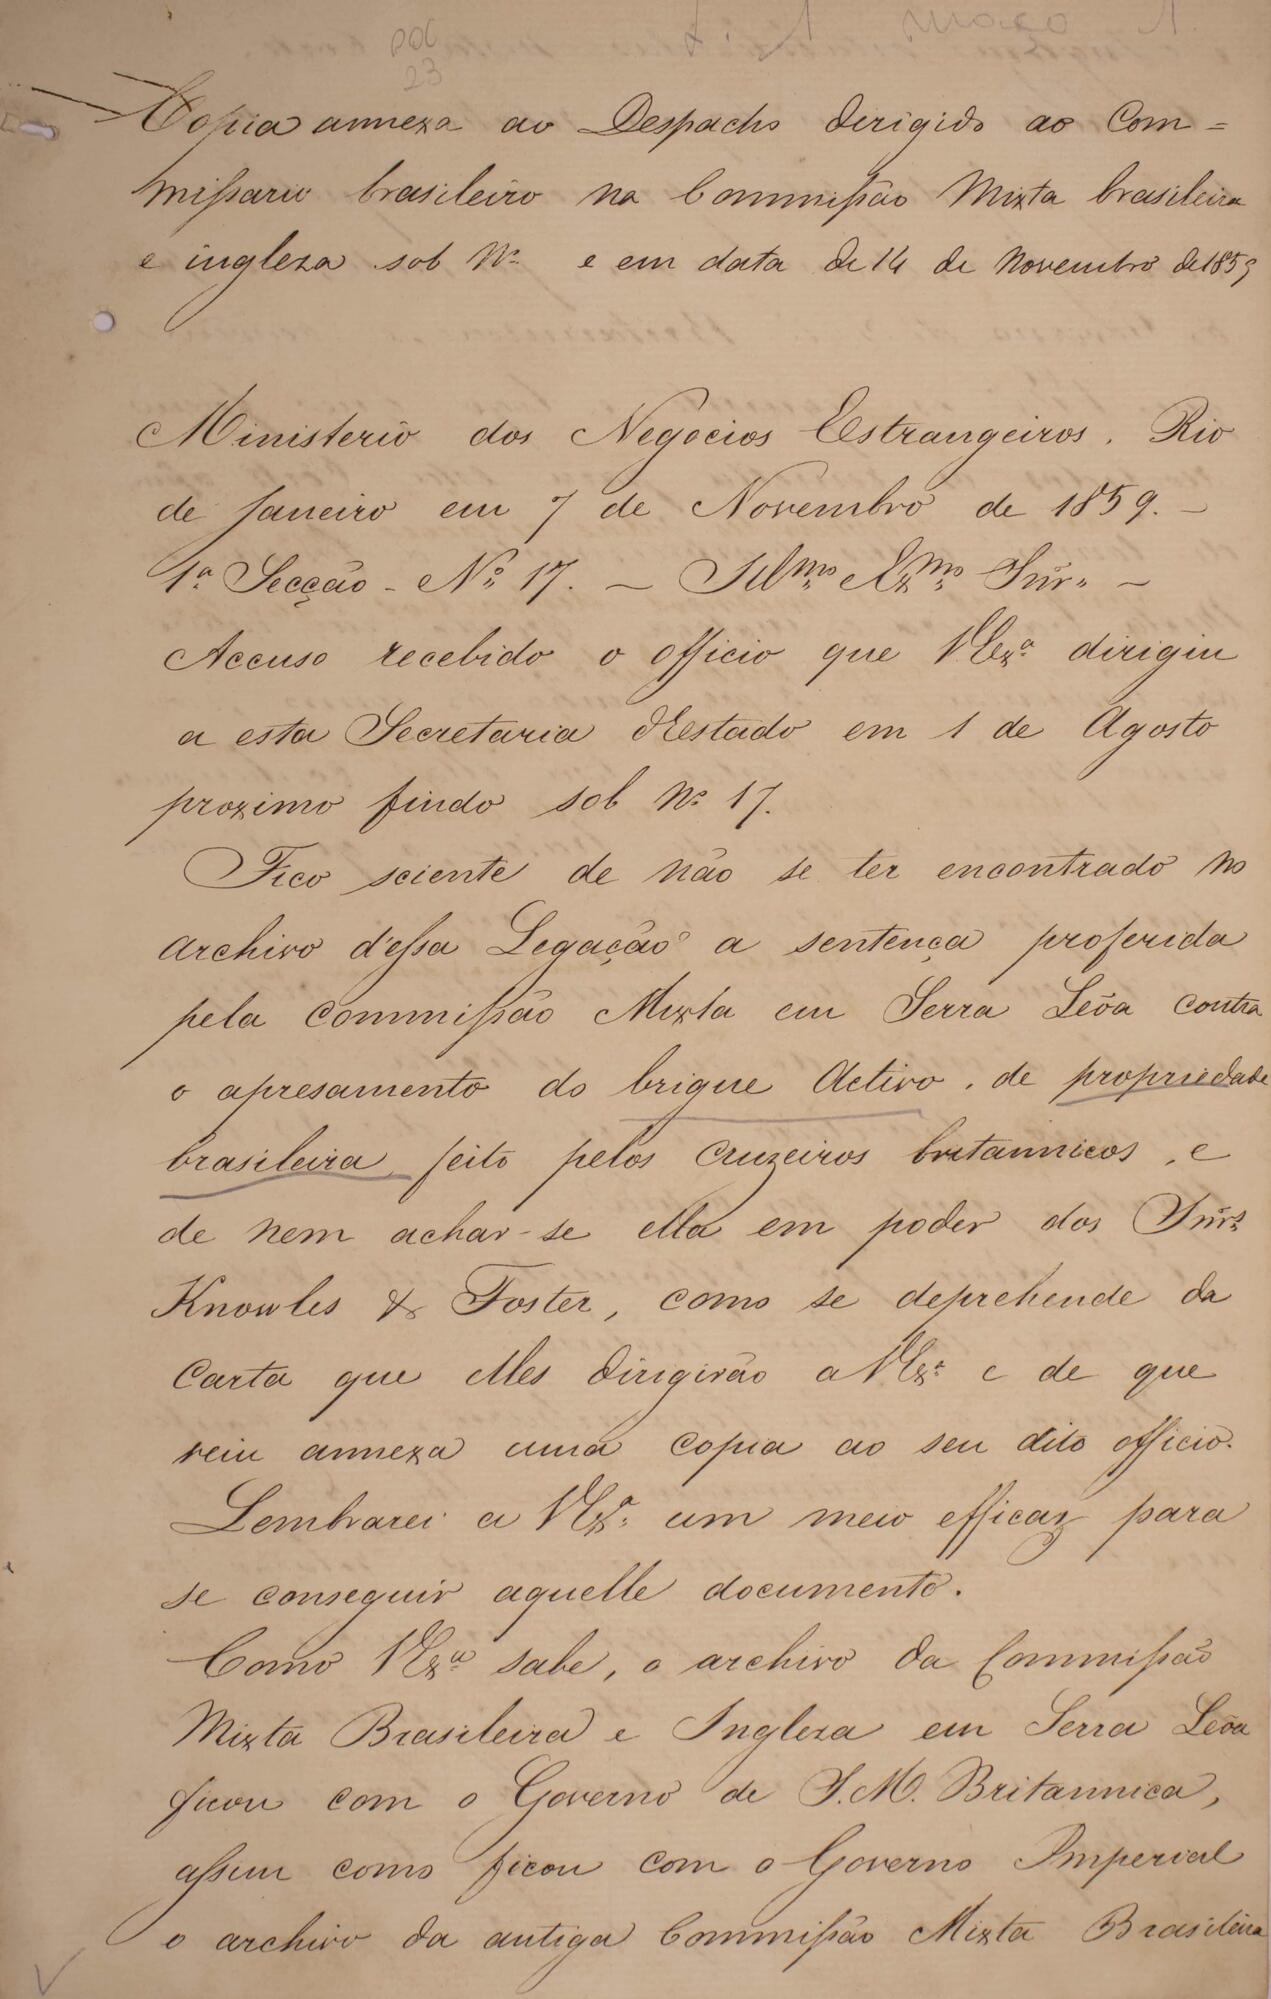 Doc
23
maço 1.
Copia annexa ao Despacho dirigido ao Com=
missario brasileiro na Commissão Mixta brasileira
e ingleza sob Nº e em data de 14 de Novembro de 1859
Ministerio dos Negocios Estrangeiros. Rio
de Janeiro em 7 de Novembro de 1859. –
1ª Secção – Nº 17. – Illmo. Exmo. Snr. –
Accuso recebido o officio que VExª dirigiu
a esta Secretaria d'Estado em 1 de Agosto
proximo findo sob Nº 17.
Fico sciente de não se ter encontrado no
archivo d'essa Legação a sentença proferida
pela Commissão Mixta em Serra Leôa contra
o apresamento do brigue Activo, de propriedade
brasileira, feito pelos cruzeiros britannicos, e
de nem achar-se ella em poder dos Snrs
Knowles & Foster, como se deprehende da
Carta que elles dirigirão a VExª e de que
veiu annexa uma copia ao seu dito officio.
Lembrarei a VExª um meio efficaz para
se conseguir aquelle documento.
Como VExª sabe, o archivo da Commissão
Mixta Brasileira e Ingleza em Serra Leôa
ficou com o Governo de S. M. Britannica,
assim como ficou com o Governo Imperial
o archivo da antiga Commissão Mixta Brasileira